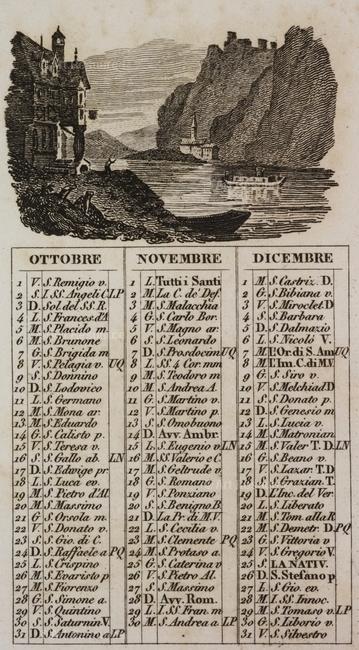 OTTOBRE
1 V. S. Remigio v.
2 S. I SS. Angeli C. LP
3 D. Sol. del SS. R.
4 L. S. Frances. d'A
5 M. S. Placido m.
6 M. S. Brunone
7 G. S. Brigida m
8 V. S. Pelagia v. UQ
9 S. S. Donnino
10 D. S. Lodovico
11 L. S. Germano
12 M. S. Mona ar.
13 M. S. Eduardo
14 G. S. Calisto p.
15 V. S. Teresa v.
16 S. S. Gallo ab. LN
17 D. S. Edwige pr
18 L. S. Luca ev.
19 M. S. Pietro d'Al.
20 M. S. Massimo
21 G. S. Orsola m.
22 V. S. Donato v.
23 S. S. Gio. di C.
24 D. S. Raffaele a PQ
25 L. S. Crispino
26 M. S. Evaristo p
27 M. S. Fiorenzo
28 G. S. Simone a.
29 V. S. Quintino
30 S. S. Saturnin V.
31 D. S. Antonino a LP
NOVEMBRE
1 L. Tutti i Santi
2 M. La C. de' Def.
3 M. S. Malacchia
4 G. S. Carlo Bor.
5 V. S. Magno ar.
6 S. S. Leonardo
7 D. S. Prosdocim UQ
8 L. SS. 4 Cor. mm
9 M. S. Teodoro m
10 M. S. Andrea A.
11 G. S. Martino v.
12 V. S. Martino p.
13 S. S. Omobuono
14 D. Avv. Ambr.
15 L. S. Eugenio v LN
16 M. SS. Valerio e C.
17 M. S. Geltrude v.
18 G. S. Romano
19 V. S. Ponziano
20 S. S. Benigno B
21 D. La Pr. di M.V.
22 L. S. Cecilia v.
23 M. S. Clemente PQ
24 M. S. Protaso a.
25 G. S. Caterina v
26 V. S. Pietro Al.
27 S. S. Massimo
28 D. Avv. Rom.
29 L. I SS. Fran. m
30 M. S. Andrea a. LP
DICEMBRE
1 M. S. Castriz. D.
2 G. S. Bibiana v.
3 V. S. Mirocle D
4 S. S. Barbara
5 D. S. Dalmazio
6 L. S. Nicolò V.
7 M. l'Or. di S. Am UQ
8 M. l'Im. C. di M.V.
9 G. S. Siro v.
10 V. S. Melchiad D
11 S. S. Donato p.
12 D. S. Genesio m
13 L. S. Lucia v.
14 M. S. Matronian
15 M. S. Valer T.D. LN
16 G. S. Bean v.
17 V. S. Lazar. T.D
18 S. S. Grazian. T.
19 D. L'Inc. del Ver
20 L. S. Liberato
21 M. S. Tom. alla R
22 M. S. Demetr. D. PQ
23 G. S. Vittoria v
24 V. S. Gregorio V.
25 S. LA NATIV.
26 D. S. Stefano p
27 L. S. Gio. ev.
28 M. I SS. Innoc.
29 M. S. Tomaso v. LP
30 G. S. Liborio v.
31 V. S. Silvestro